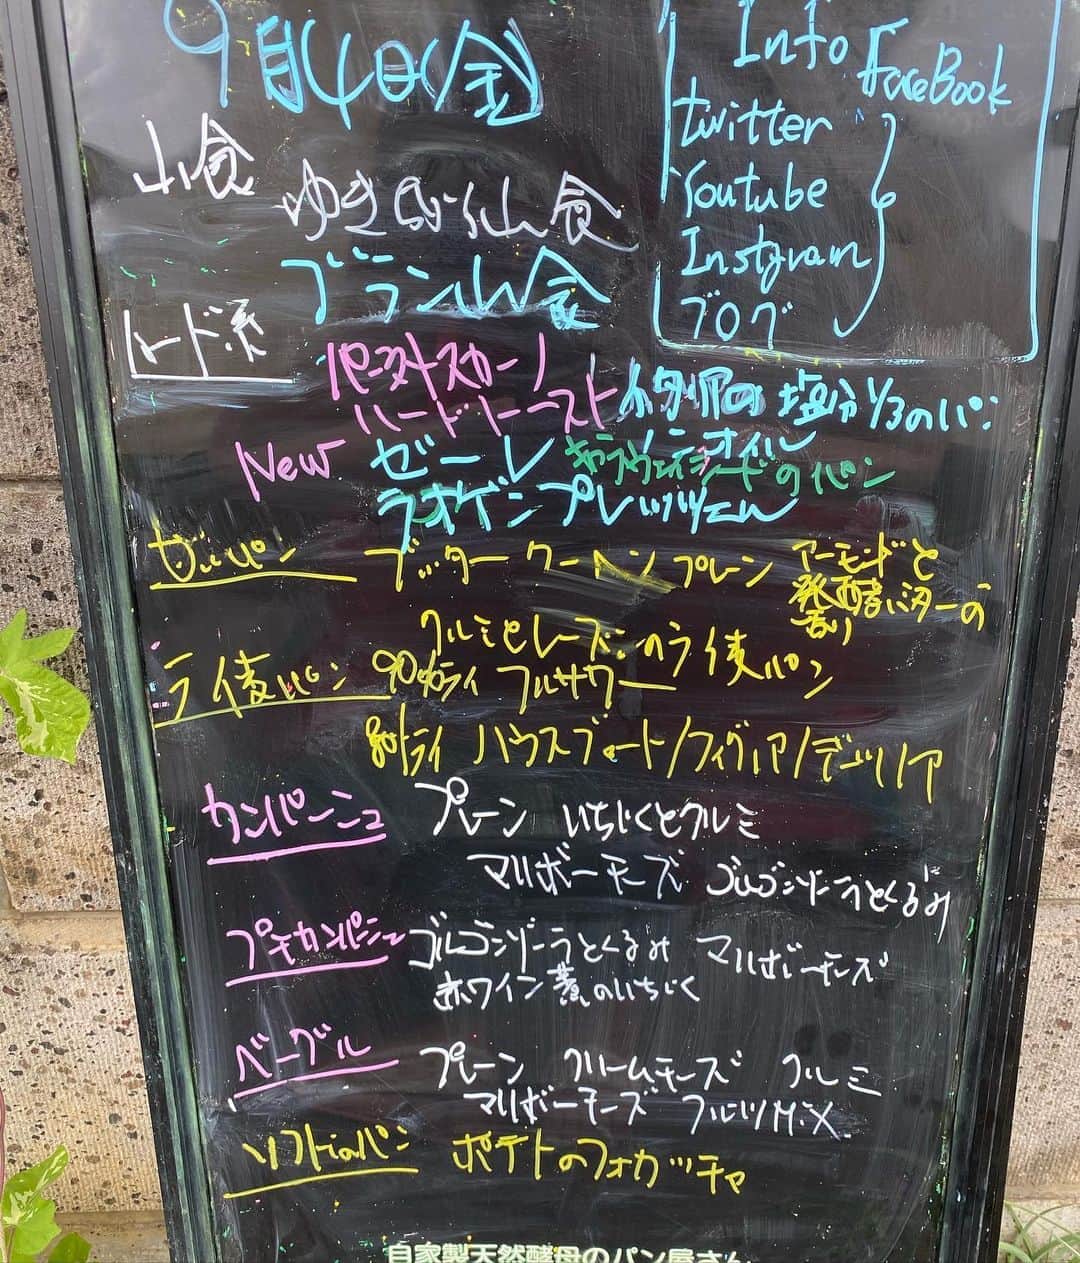 9月4日(金)
Info
FaceBook
twitter
Youtube
Instgram
ブログ
山食
ゆき 山食
ブラン山食
ハード系
パーネトスカーノ イタリアの塩分1/3のパン
ハードトースト
New ゼーレ キャラウェイシードのパン
ラオゲンプレッツェル
甘いパン ブッタークーヘン プレーン アーモンドと
発酵バターの
香り
クルミとレーズンのライ麦パン
ライ麦パン 90%ライ フルサワー
ライ ハウスブロート/フィグ
カンパーニュ プレーン いちじくとクルミ
マリボーチーズ ゴルゴンゾーラとくるみ
プチカンパーニュ ゴルゴンゾーラとくるみ マリボーチーズ
赤ワイン煮のいちじく
ベーグル プレーン クリームチーズ クルミ
マリボーチーズ フルーツMiX
ソフトなパン ポテトのフォカッチャ
自家製天然酵母のパン屋さん